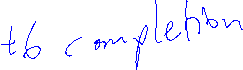 to completion